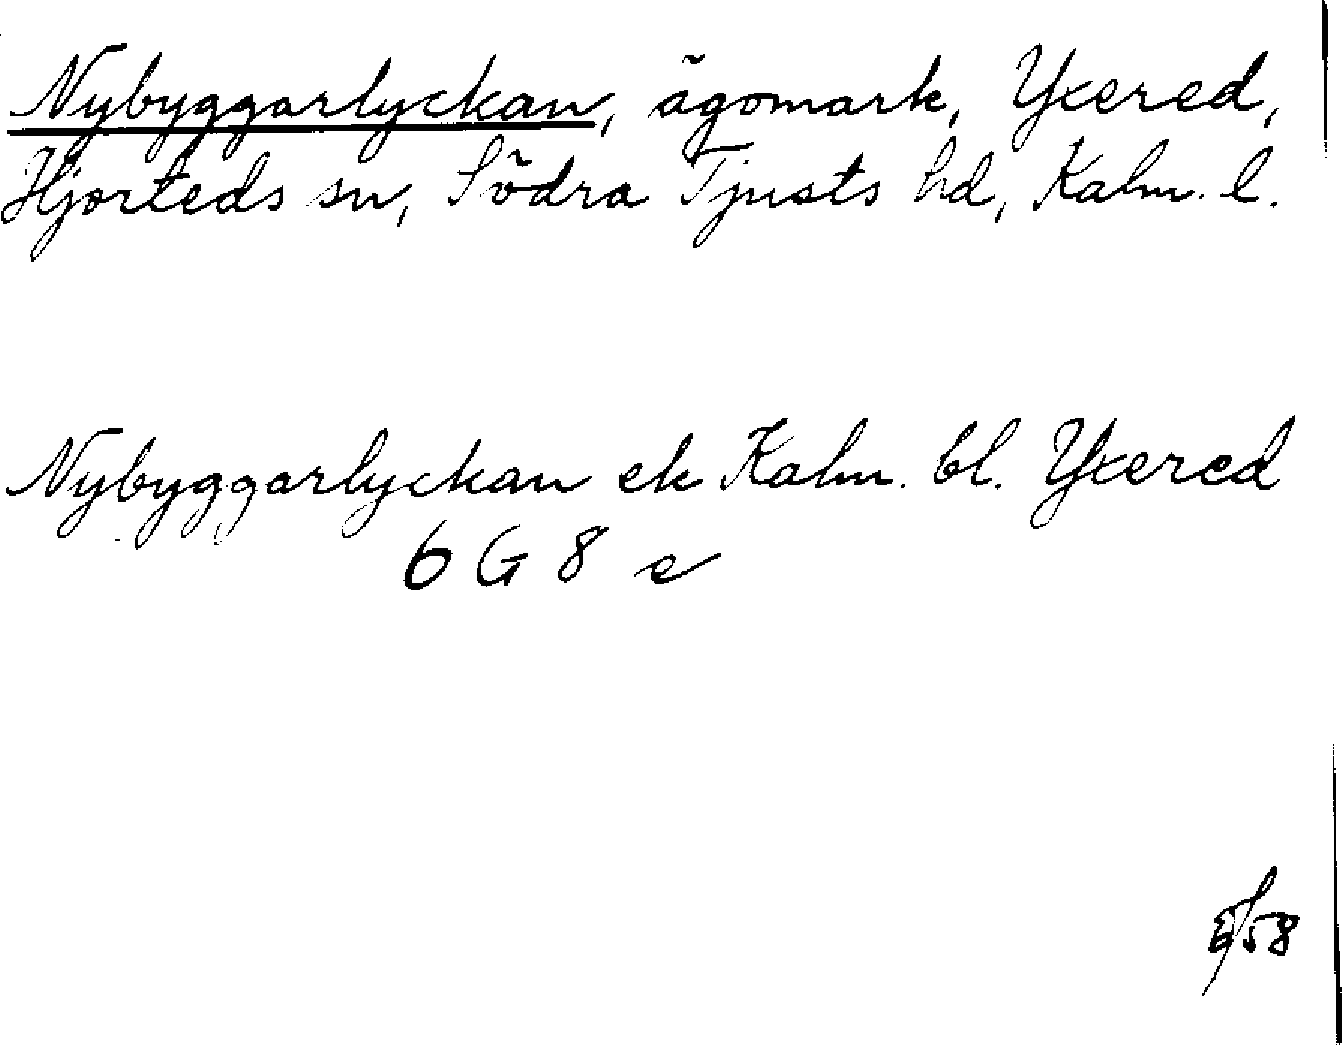 Nybyggarlyckan, ägomark, Yxered,
Hjorteds sn, Södra Tjusts hd, Kalm. l.
Nybyggarlyckan ek Kalm. bl. Yxered
6 G 8 e